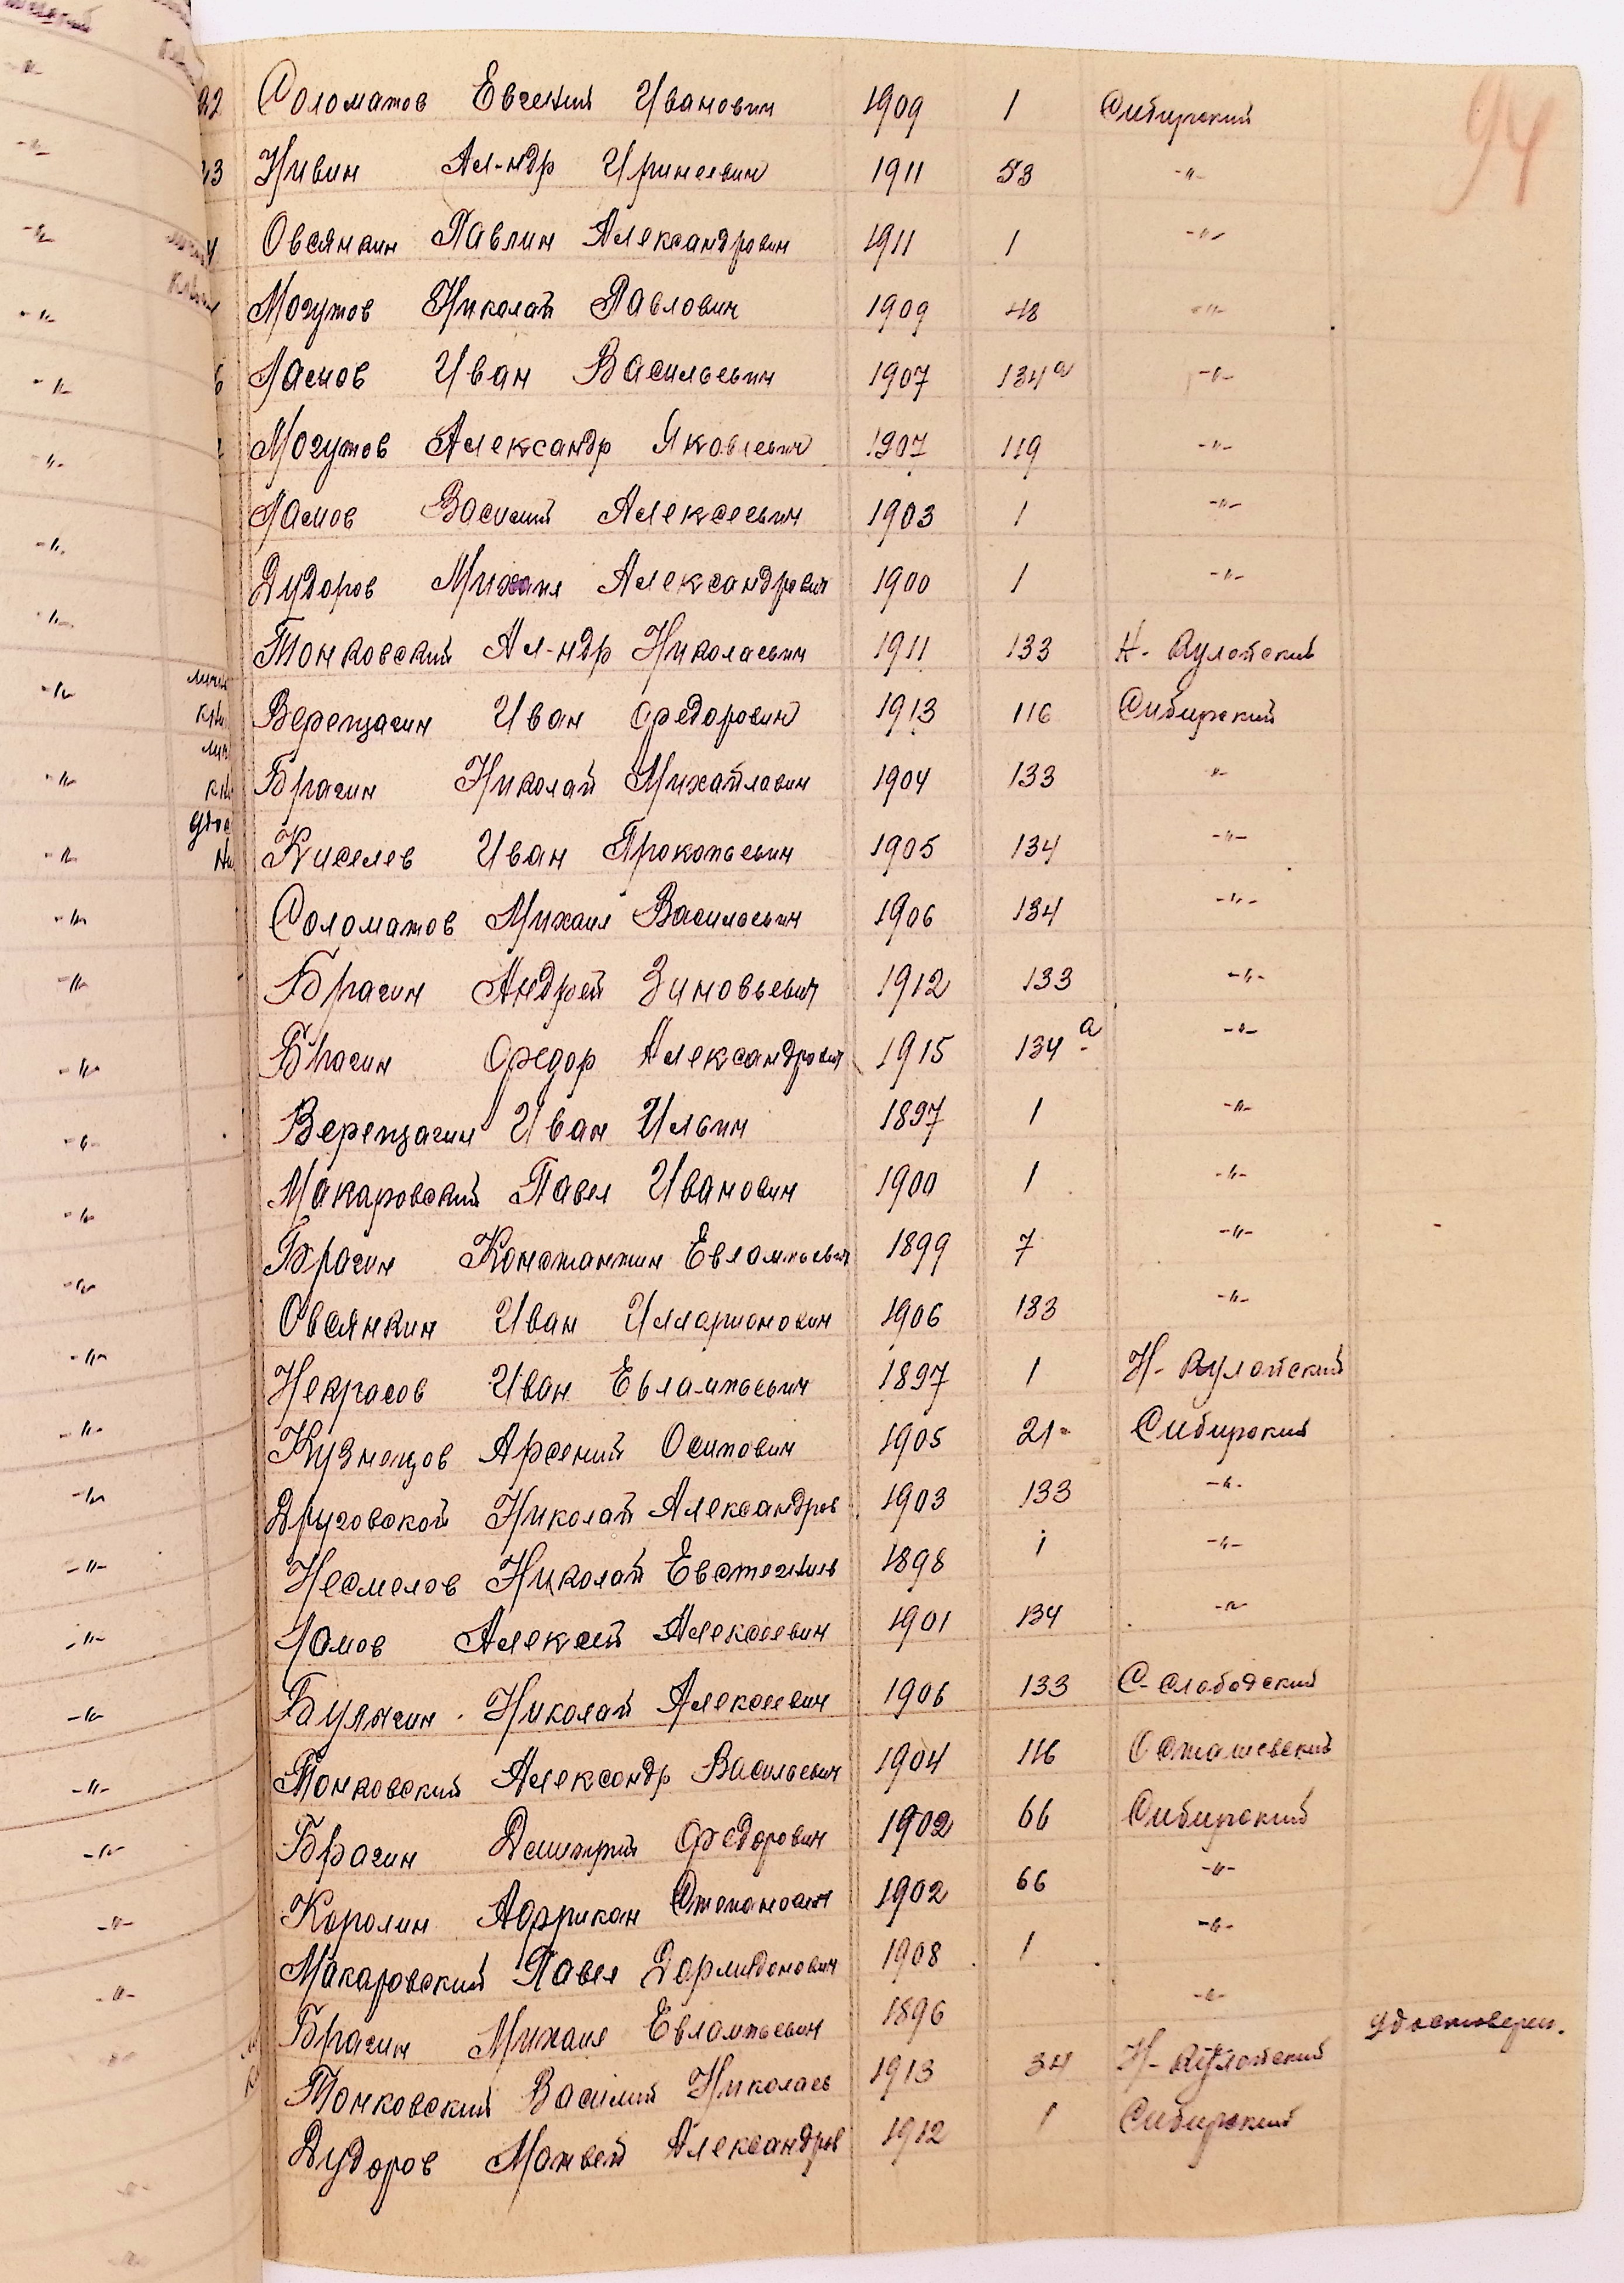 94
22 Соломатов Евгений Иванович 1909 1 Сибирский
23 Нивин Ал-ндр Иринеевич 1911 53 -"-
Овсянкин Павлин Александрович 1911 1 -"-
Могутов Николай Павлович 1909 48 -"-
6 Ламов Иван Васильевич 1907 134а -"-
Могутов Александр Яковлевич 1907 119 -"-
Ламов Василий Алексеевич 1903 1 -"-
Дудоров Михаил Александрович 1900 1 -"-
Тонковский Ал-ндр Николаевич 1911 133 Н-Кулойский
Верещагин Иван Федорович 1913 116 Сибирский
Брагин Николай Михайлович 1904 133 -"-
Киселев Иван Прокопьевич 1905 134 -"-
Соломатов Михаил Васильевич 1906 134 -"-
Брагин Андрей Зиновьевич 1912 133 -"-
Брагин Федор Александрович 1915 134а -"-
Верещагин Иван Ильич 1897 1 -"-
Макаровский Павел Иванович 1900 1 -"-
Брагин Константин Евлампьевич 1899 7 -"-
Овсянкин Иван Илларионович 1906 133 -"-
Некрасов Иван Евлампьевич 1897 1 Н-Кулойский
Кузнецов Арсений Осипович 1905 21 Сибирский
Друговской Николай Александров 1903 133 -"-
Несмелов Николай Евстегнеев 1898 1 -"-
Ламов Алексей Алексеевич 1901 134 -"-
Булыгин Николай Алексеевич 1906 133 С-Слободский
Тонковский Александр Васильевич 1904 116 Осташевский
Брагин Дмитрий Федорович 1902 66 Сибирский
Каролин Африкан Степанович 1902 66 -"-
Макаровский Павел Дормидонович 1908 1 -"-
Брагин Михаил Евлампьевич 1896 -"- удостоверен.
Тонковский Василий Николаев 1913 34 Н-Кулойский
Дудоров Матвей Александров 1912 1 Сибирский